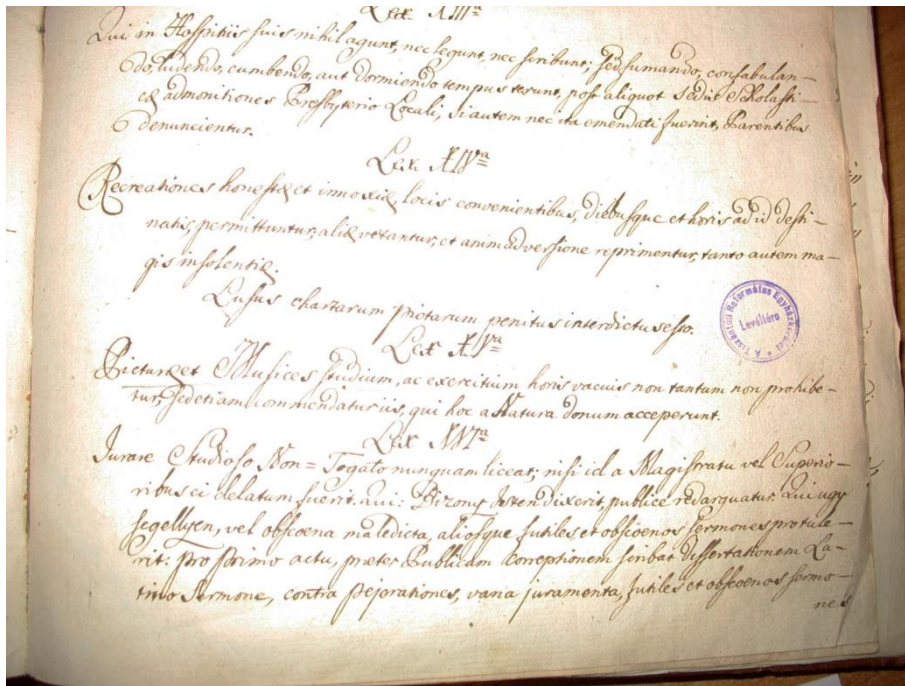 Lex XIIIa
Qui in Hospitiis suis nihil agunt, nec legunt, nec scribunt; sed fumando, confabulan–
do, ludendo, cumbendo, aut dormiendo tempus terunt, post aliquot Sedis Scholasti–
cæ admonitiones Presbyterio Locali, si autem nec ita emendati fuerint, Parentibus
denuncientur.
Lex XIVa
Recreationes honestæ et innoxiæ locis convenientibus, diebusque et horis ad id desti–
natis, permittuntur, aliæ vetantur, et animadversione reprimentur, tanto autem ma–
gis insolentiæ.
Lusus chartarum pictarum penitus interdictus esto.
Lex XVa
Picturæ et Musices studium, ac exercitium horis vacuis non tantum non prohibe–
tur, sed etiam commendatur iis, qui hoc a Natura donum acceperunt.
Lex XVIa
Jurare Studioso Non= Togato nunquam liceat; nisi id a Magistratu vel Superio–
ribus ei delatum fuerit. Qui: Bizony Isten dixerit, publice redarguatur. Qui ugy
segellyen, vel obscoena maledicta, aliosque futiles et obscoenos sermones protule–
rit: pro primo actu, præter Publicam correptionem scribat dissertationem La–
tino Sermone, contra pejerationes, vana juramenta, futiles et obscoenos sermo–
nes
A Tiszántúli Református Egyházkerület
Levéltára